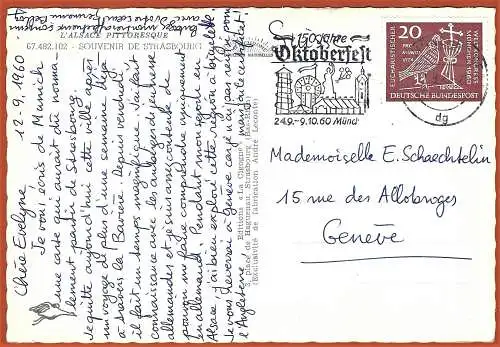 L'ALSACE PITTORESQUE
67.482.102 - SOUVENIR DE STRASBOURG
12-9-1960
Chère Evelyne
Je vous écris de Munich
une carte qui aurait dû norma-
lement partir de Strasbourg.
Je quitte aujourd'hui cette ville après
un voyage de plus d'une semaine déjà
à travers la Bavière. Depuis vendredi
il fait un temps magnifique. J'ai fait
connaissance avec les auberges de jeunesse
allemandes et je suis assez contente de
pouvoir me faire comprendre sympathiquement
en allemand. Pendant mon séjour en
Alsace, j'ai bien exploré cette région à bicyclette.
Je vous reverrai à Genève car je n'ai pas rejoint
l'Angleterre
Editions "La Cigogne"
3, place de Haguenau Strasbourg (Bas-Rhin)
(Exclusivité de fabrication André Leconte)
150 Jahre
Oktoberfest
24.9.-9.10.60 Münch
20
EUCHARISTISCHER
WELTKONGRESS
MÜNCHEN 1960
PRO
MUNDI
VITA
DEUTSCHE BUNDESPOST
14
dg
Mademoiselle E. Schaechtelin
15 rue des Allobroges
Genève